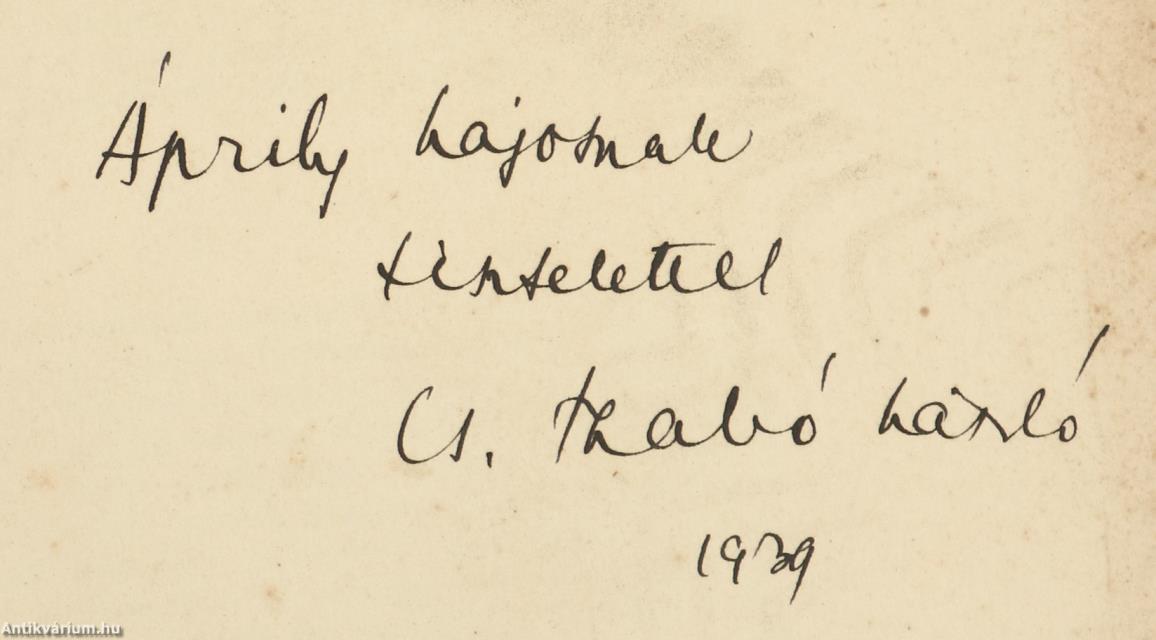 Áprily Lajosnak
tisztelettel
Cs. Szabó László
1939
Antikvárium.hu